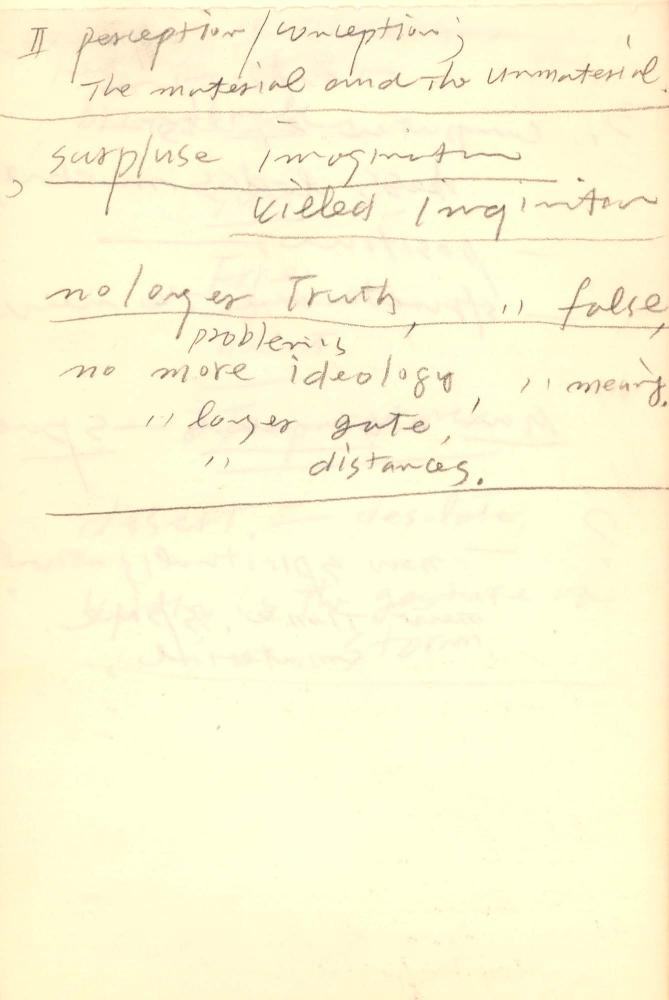 II perception/conception;
The material and the unmaterial.
surpluse imagination
killed imagination
no longer Truth, " false,
problems
no more ideology, " meaning.
" longer gate,
" distances.